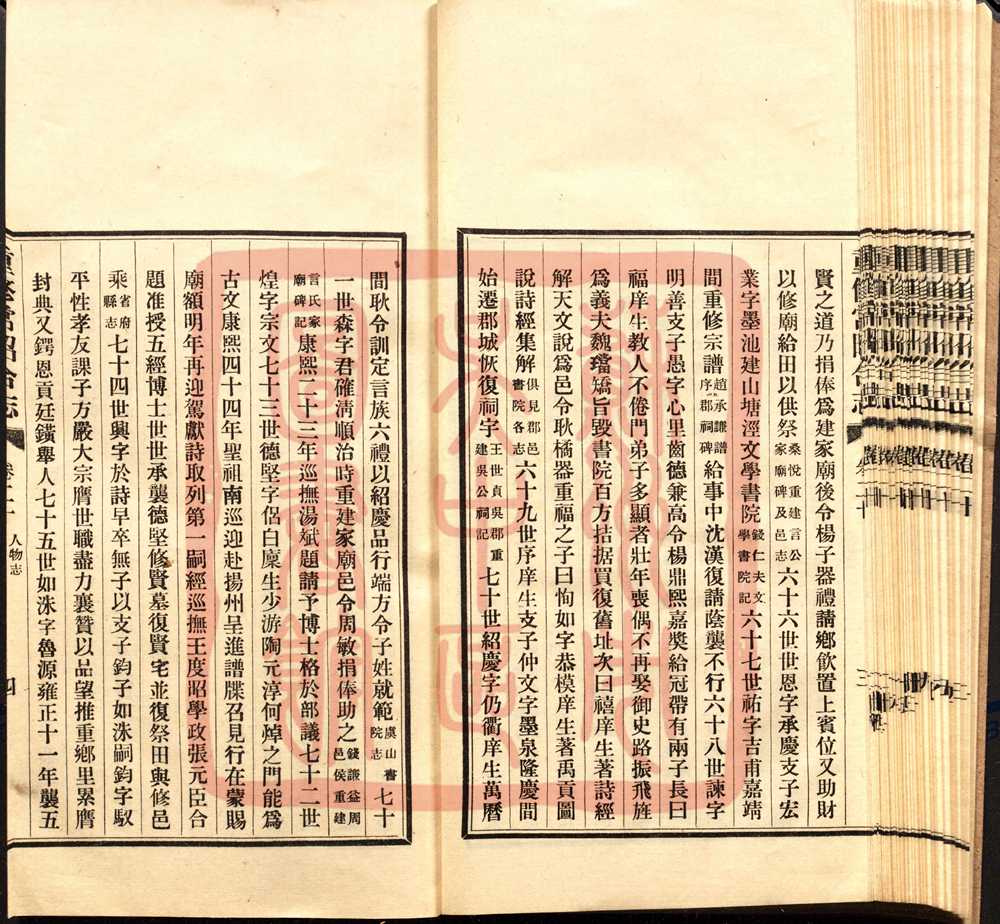 賢之道乃捐俸爲建家廟後令楊子器禮請鄉飲置上賓位又助財
以修廟給田以供祭桑悅重建言公家廟碑及邑志六十六世世恩字承慶支子宏
業字墨池建山塘涇文學書院錢仁夫文學書院記六十七世祐字吉甫嘉靖
間重修宗譜趙承謙譜序郡祠碑給事中沈漢復請蔭襲不行六十八世諫字
明善支子愚字心里齒德兼高令楊鼎熙嘉奬給冠帶有兩子長曰
福庠生教人不倦門弟子多顯者壯年喪偶不再娶御史路振飛旌
爲義夫魏璫矯旨毀書院百方拮据買復舊址次曰禧庠生著詩經
解天文說爲邑令耿橘器重福之子曰恂如字恭模庠生著禹貢圖
說詩經集解俱見郡邑書院各志六十九世序庠生支子仲文字墨泉隆慶間
始遷郡城恢復祠宇王世貞吳郡重建吳公祠記七十世紹慶字仍衢庠生萬曆
間耿令訓定言族六禮以紹慶品行端方令子姓就範虞山書院志七十
一世森字君確淸順治時重建家廟邑令周敏捐俸助之錢謙益周邑侯重建
言氏家廟碑記康熙二十三年巡撫湯斌題請予博士格於部議七十二世
煌字宗文七十三世德堅字侶白廩生少游陶元淳何焯之門能爲
古文康熙四十四年聖祖南巡迎赴揚州呈進譜牒召見行在蒙賜
廟額明年再迎駕獻詩取列第一嗣經巡撫王度昭學政張元臣合
題准授五經博士世世承襲德堅修賢墓復賢宅並復祭田與修邑
乘省府縣志七十四世興字於詩早卒無子以支子鈞子如洙嗣鈞字馭
平性孝友課子方嚴大宗膺世職盡力襄贊以品望推重鄉里累膺
封典又鍔恩貢廷鐄舉人七十五世如洙字魯源雍正十一年襲五
重修常昭合志
人物志
四